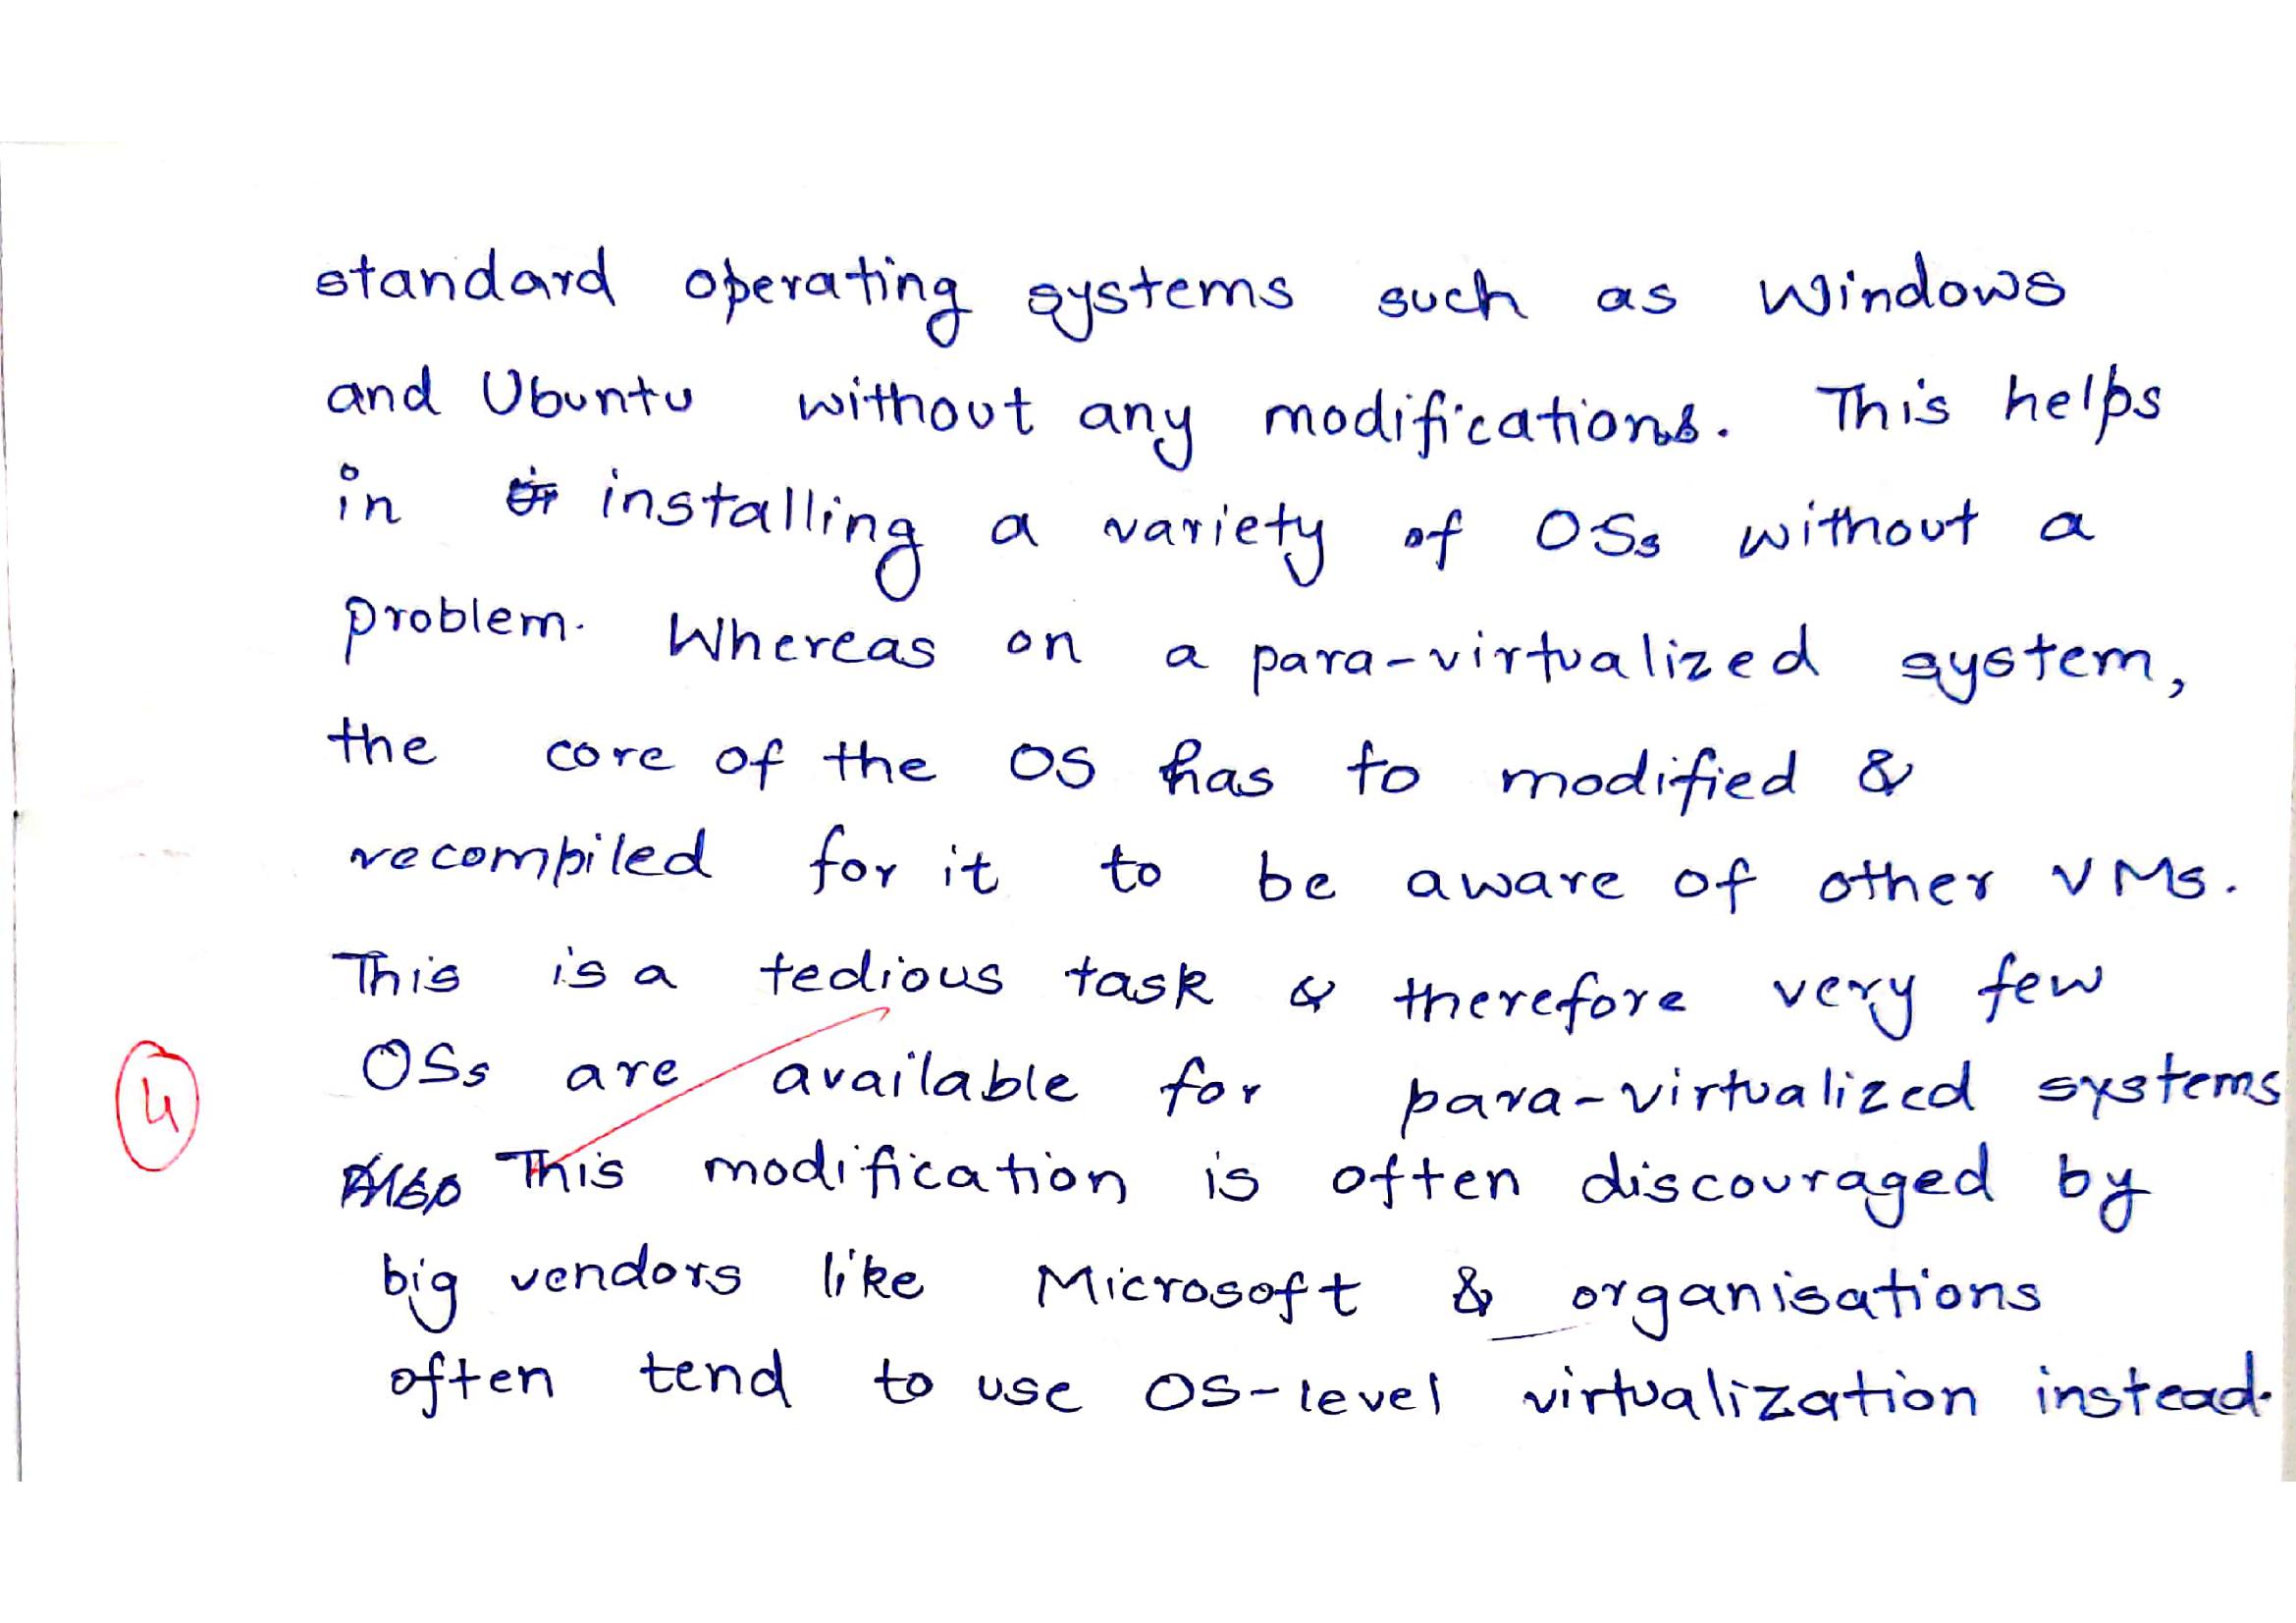 standard operating systems such as Windows
and Ubuntu without any modifications. This helps
in installing a variety of OSs without a
problem. Whereas on a para-virtualized system,
the core of the OS has to modified &
recompiled for it to be aware of other VMs.
This is a tedious task & therefore very few
OSs are available for para-virtualized systems
4
Also This modification is often discouraged by
big vendors like Microsoft & organisations
often tend to use OS-level virtualization instead.